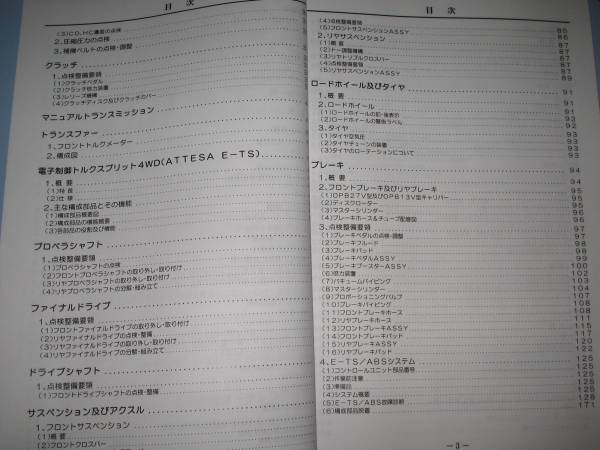 目 次
(3)CO、HC濃度の点検
2、圧縮圧力の点検
3、補機ベルトの点検・調整
クラッチ
1、点検整備要領
(1)クラッチペダル
(2)クラッチ倍力装置
(3)レリーズ機構
(4)クラッチディスク及びクラッチカバー
マニュアルトランスミッション
トランスファー
1、フロントトルクメーター
2、構成図
電子制御トルクスプリット4WD(ATTESA E-TS)
1、概 要
(1)特 長
(2)仕 様
2、主な構成部品とその機能
(1)構成部品概要図
(2)構成部品の構成概要
(3)各部品の役割及び機能
プロペラシャフト
1、点検整備要領
(1)プロペラシャフトの点検
(2)フロントプロペラシャフトの取り外し・取り付け
(3)リヤプロペラシャフトの取り外し・取り付け
(4)リヤプロペラシャフトの分解・組み立て
ファイナルドライブ
1、点検整備要領
(1)フロントファイナルドライブの取り外し・取り付け
(2)リヤファイナルドライブの点検・整備
(3)リヤファイナルドライブの取り外し・取り付け
(4)リヤファイナルドライブの分解・組み立て
ドライブシャフト
1、点検整備要領
(1)フロントドライブシャフトの点検・整備
サスペンション及びアクスル
1、フロントサスペンション
(1)概 要
(2)フロントクロスバー
目 次
(4)点検整備要領 85
(5)フロントサスペンションASSY 86
2、リヤサスペンション 87
(1)概 要 87
(2)トー調整機構 87
(3)リヤトリプルクロスバー 87
(4)点検整備要領 87
(5)リヤサスペンションASSY 89
ロードホイール及びタイヤ
1、概 要 91
2、ロードホイール 91
(1)ロードホイールの前・後表示 92
(2)ロードホイールの警告ラベル 92
3、タイヤ 93
(1)タイヤ空気圧 93
(2)タイヤチェーンの装着 93
(3)タイヤのローテーションについて 93
ブレーキ 94
1、概 要 94
2、フロントブレーキ及びリヤブレーキ
(1)OPB27V型及びOPB13V型キャリパー
(2)ディスクローター
(3)マスターシリンダー
(4)ブレーキホース&チューブ配管図
3、点検整備要領
(1)ブレーキペダルの点検・調整
(2)ブレーキフルード
(3)ブレーキパッド
(4)ブレーキペダルASSY
(5)ブレーキブースターASSY
(6)倍力装置
(7)バキュームパイピング 102
(8)マスターシリンダー
(9)プロポーショニングバルブ
(10)ブレーキパイピング
(11)フロントブレーキホース 108
(12)リヤブレーキホース 111
(13)フロントブレーキASSY
(14)フロントブレーキパッド
(15)リヤブレーキASSY 120
(16)リヤブレーキパッド 122
4、E-TS/ABSシステム 125
(1)コントロールユニット部品番号 125
(2)作業前注意 125
(3)準備品 125
(4)システム概要 125
(5)E-TS/ABS故障診断 128
(6)構成部品脱着 171
-3-